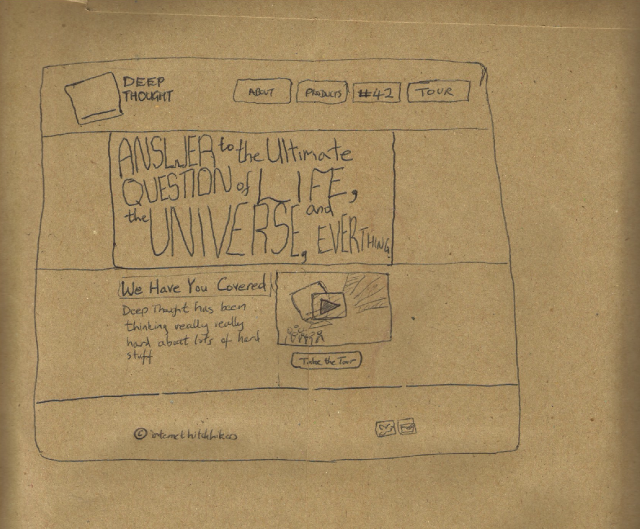 DEEP
THOUGHT
ABOUT
PRODUCTS
#42
TOUR
ANSWER to the Ultimate
QUESTION of LIFE,
the UNIVERSE, and
EVERYTHING
We Have You Covered
Deep Thought has been
thinking really really
hard about lots of hard
stuff
Take the Tour
© internet hitchhikers